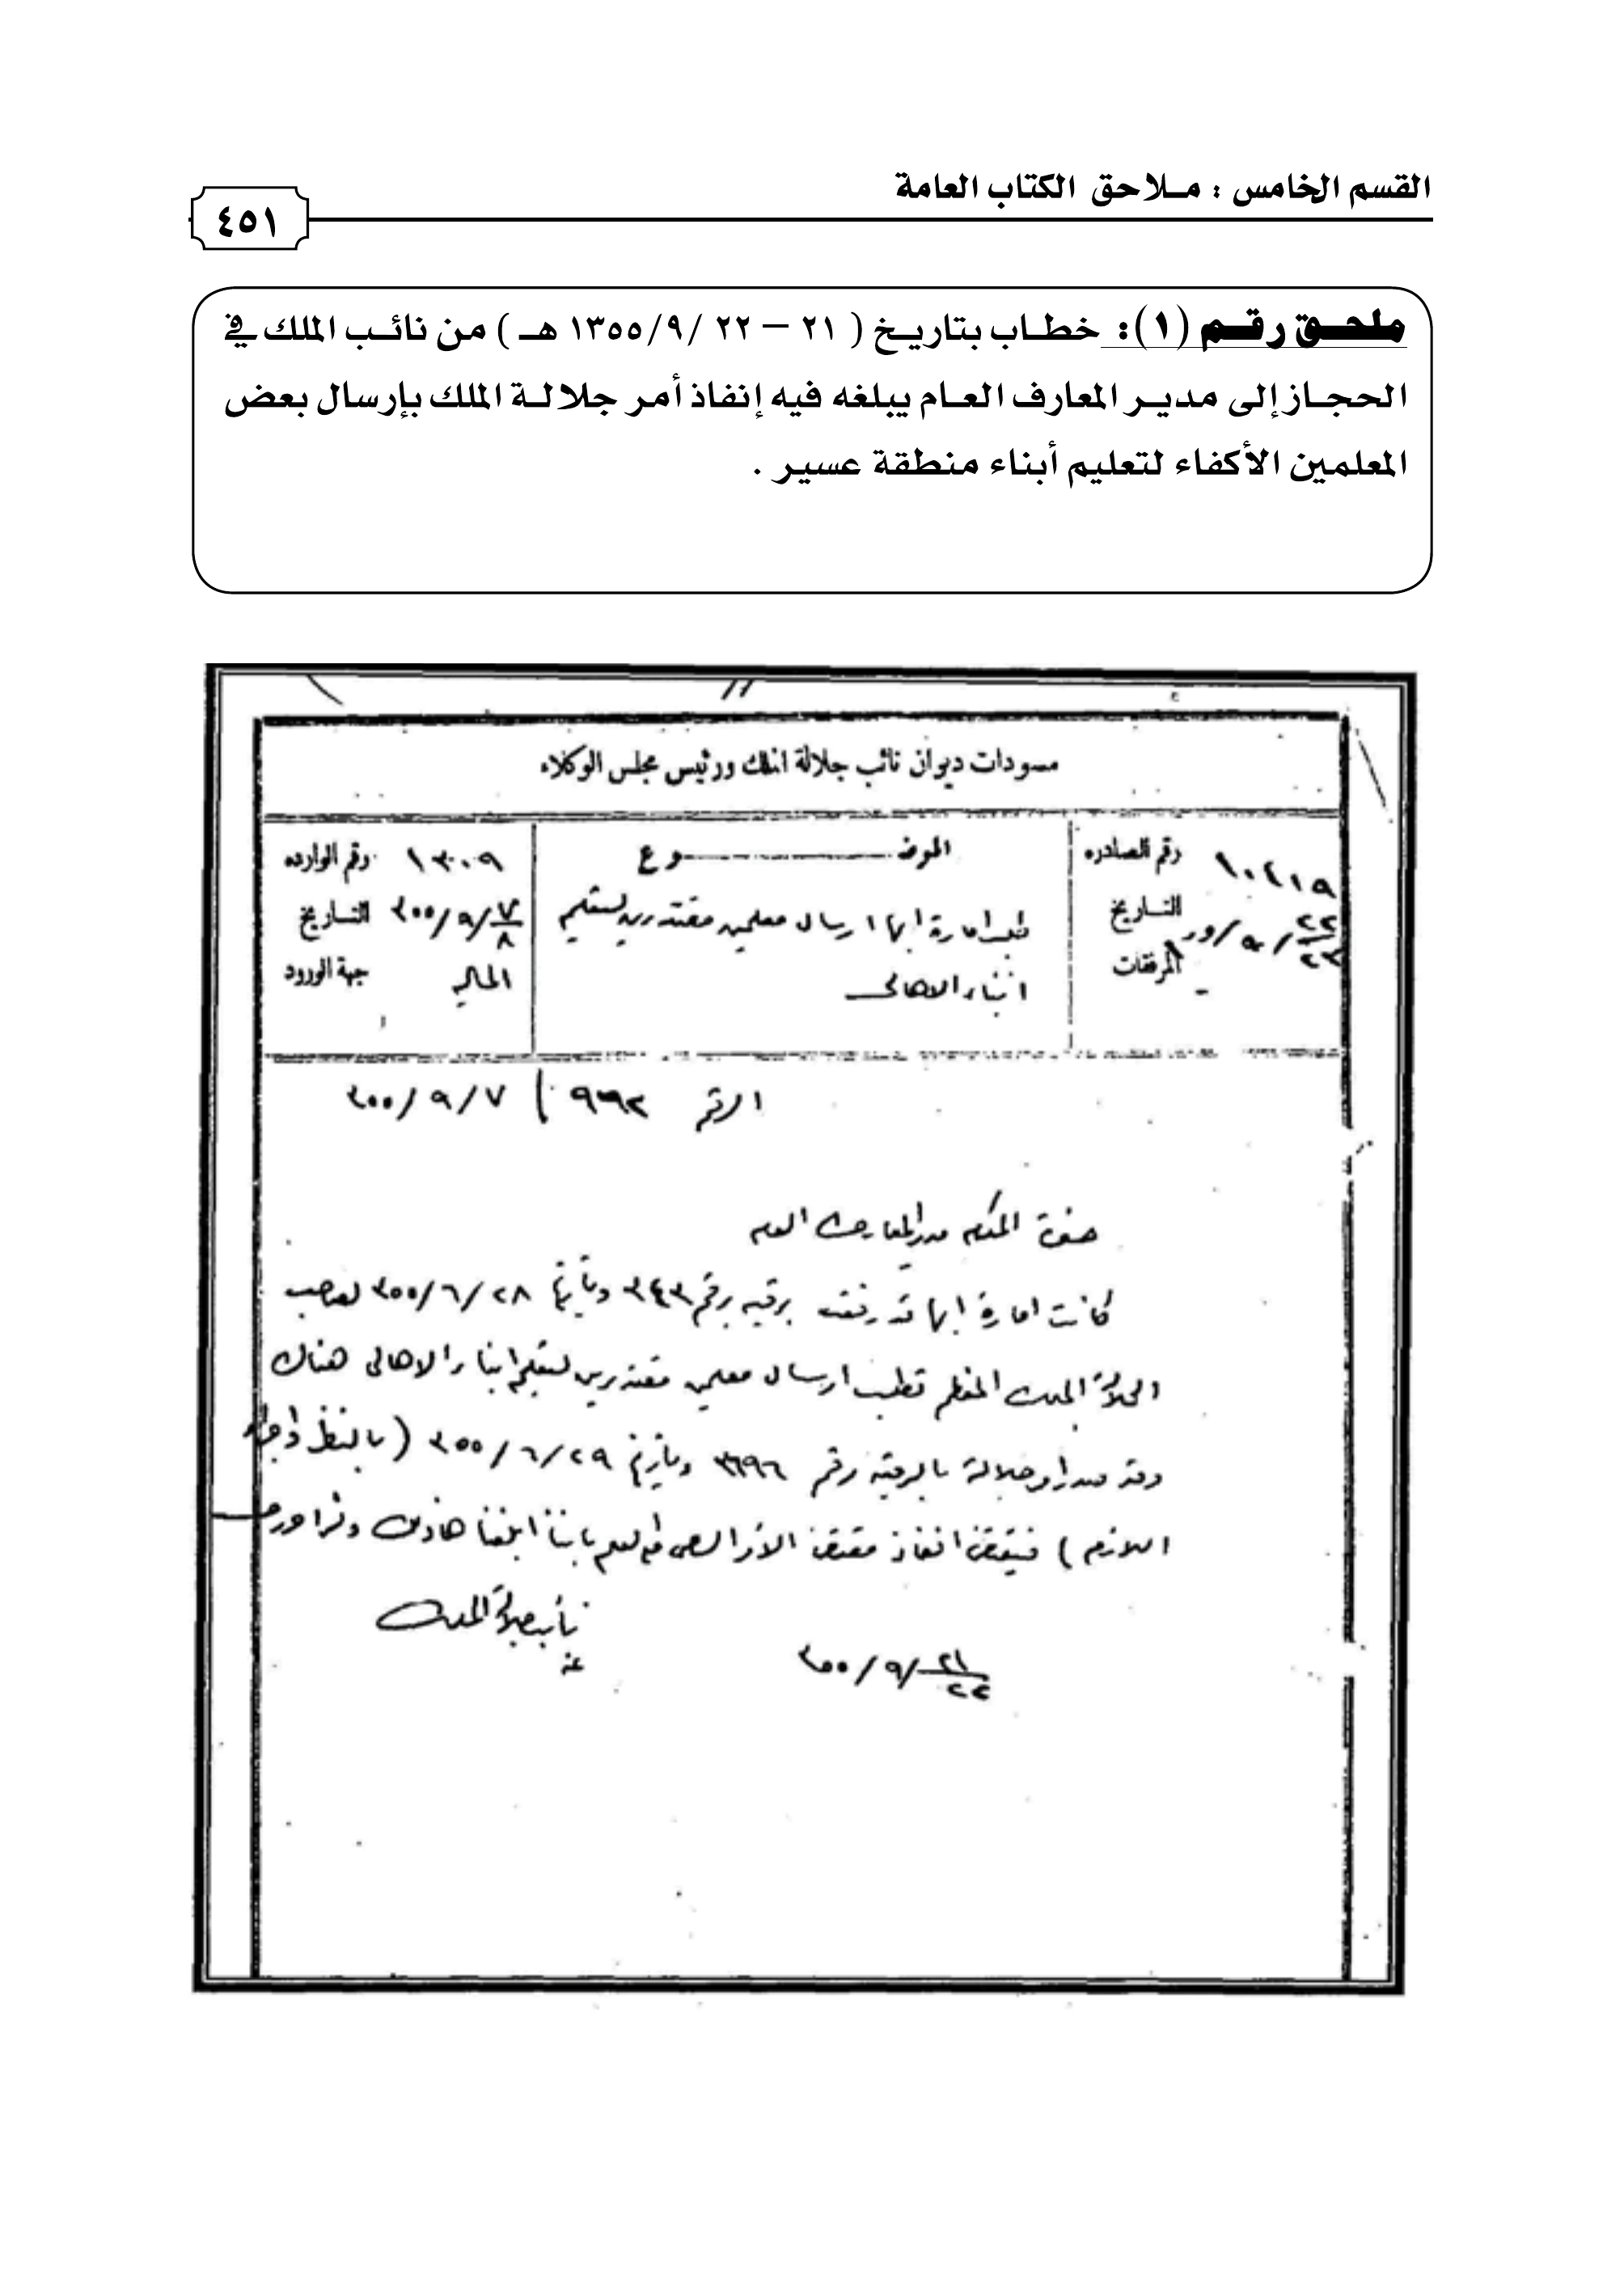 القسم الخامس : ملاحق الكتاب العامة
٤٥١
ملحق رقم (١): خطاب بتاريخ ( ٢١ – ٢٢ /٩/ ١٣٥٥ هـ ) من نائب الملك في
الحجاز إلى مدير المعارف العام يبلغه فيه إنفاذ أمر جلالة الملك بإرسال بعض
المعلمين الأكفاء لتعليم أبناء منطقة عسير .
مسودات ديوان نائب جلالة الملك ورئيس مجلس الوكلاء
رقم الصادره ١٠٤١٩
التاريخ ٢٢/٢٣ /٩/
المرفقات -
الموضوع
طلب امارة ابها ارسال معلمين مقتدرين لتعليم
ابناء الاهالي
رقم الوارده ١٣٠٩
التاريخ ٧/٨ /٩/ ٣٥٥
جهة الورود المالية
الرقم ٩٩٢ / ٧/ ٩/ ٣٥٥
حضرة المكرم مدير المعارف العام
كانت امارة ابها قد رفعت برقيه برقم ٣٤٣ وتاريخ ٢٨/ ٦/ ٣٥٥ لصاحب
الجلالة الملك المعظم تطلب ارسال معلمين مقتدرين لتعليم ابناء الاهالي هناك
وقد صدر امر جلالته بالبرقيه رقم ٣٦٩٦ وتاريخ ٢٩/ ٦/ ٣٥٥ ( بالنظر واجراء
اللازم ) فيقتضي انفاذ مقتضى الامر السامي
نائب جلالة الملك
٢١/٢٢ /٩/ ٣٥٥